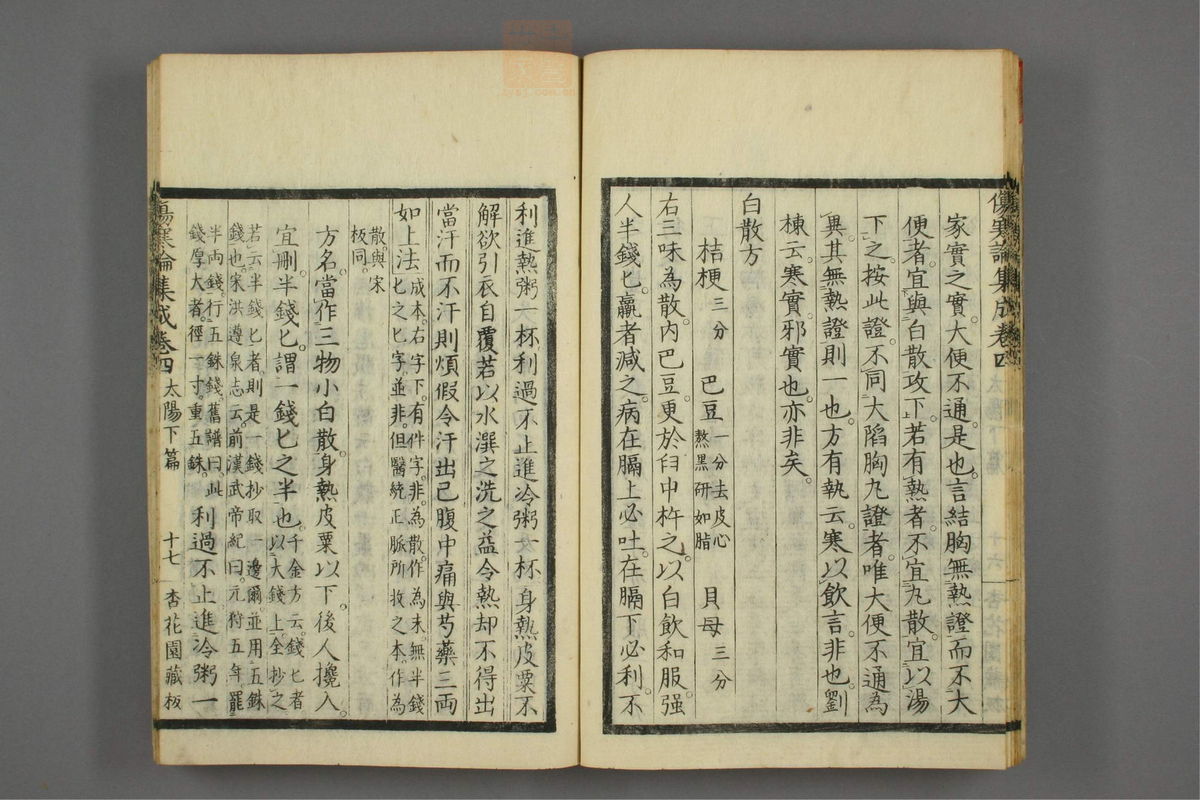 家實之實。大便不通。是也。言結胸無熱證而不大
便者。宜與白散攻下。若有熱者。不宜丸散。宜以湯
下之。按此證。不同大陷胸丸證者。唯大便不通為
異。其無熱證則一也。方有執云。寒以飲言。非也。劉
棟云。寒實。邪實也。亦非矣。
白散方
桔梗三分 巴豆一分去皮心熬黑研如脂 貝母三分
右三味為散。内巴豆。更於臼中杵之。以白飲和服。强
人半錢匕。羸者減之。病在膈上必吐。在膈下必利。不
傷寒論集成卷四
利進熱粥一杯利過不止進冷粥一杯身熱皮粟不
解欲引衣自覆若以水潠之洗之益令熱却不得出
當汗而不汗則煩假令汗出已腹中痛與芍藥三兩
如上法。成本。右字下。有件字。非。為散。作為末。無半錢
匕之匕字。並非。但醫統正脈所收之本。作為
散。與宋
板同。
方名。當作三物小白散。身熱皮粟以下。後人攙入。
宜刪。半錢匕。謂一錢匕之半也。千金方云。錢匕者
以大錢上全抄之
若云半錢匕者則是一錢抄取一邊爾。並用五銖
錢也。宋洪遵泉志云。前漢武帝紀曰。元狩五年罷
半兩錢行五銖錢。舊譜曰。此
錢厚大者。徑一寸。重五銖。利過不止進冷粥一
傷寒論集成卷四 太陽下篇 十七 杏花園藏板